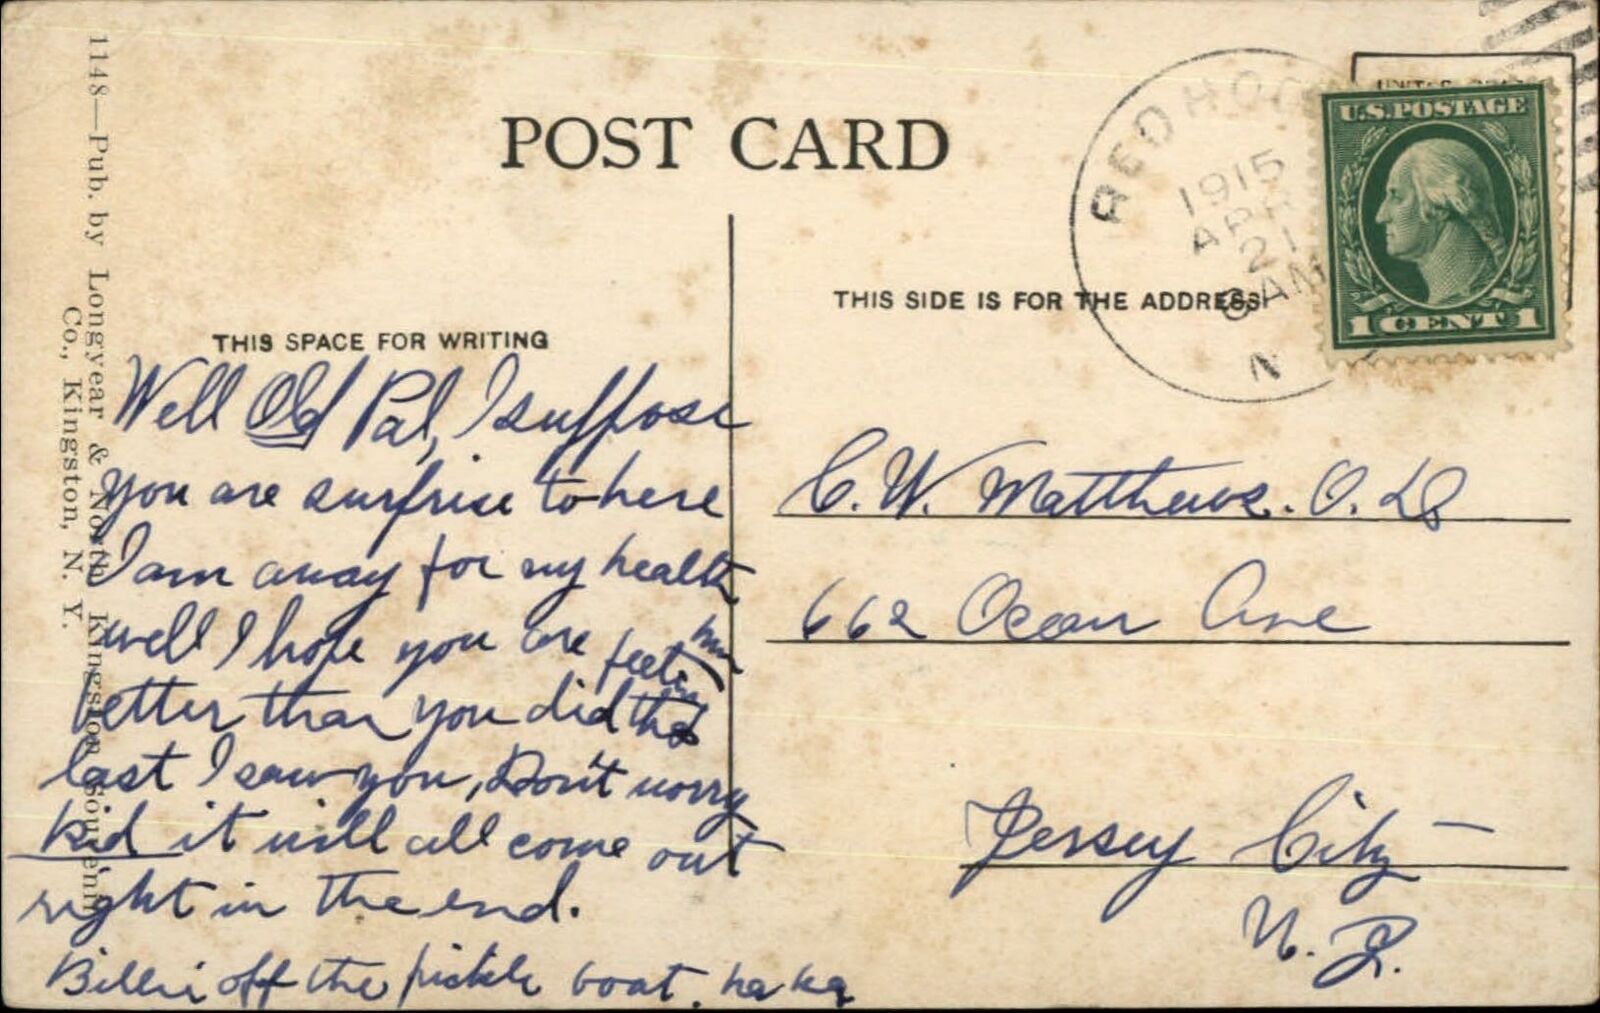 POST CARD
THIS SPACE FOR WRITING
THIS SIDE IS FOR THE ADDRESS
1148—Pub. by Longyear & North Kingston Souvenir
Co., Kingston, N. Y.
RED HOO
1915
APR
21
8 AM
N
U.S. POSTAGE
1 CENT 1
Well Old Pal, I suppose
you are surprise to here
I am away for my health
well I hope you are feeting
better than you did the
last I saw you, Don't worry
kid it will all come out
right in the end.
Billie off the pickle boat. ha ha
C. W. Matthews. O. D
662 Ocean Ave
Jersey City —
N. J.